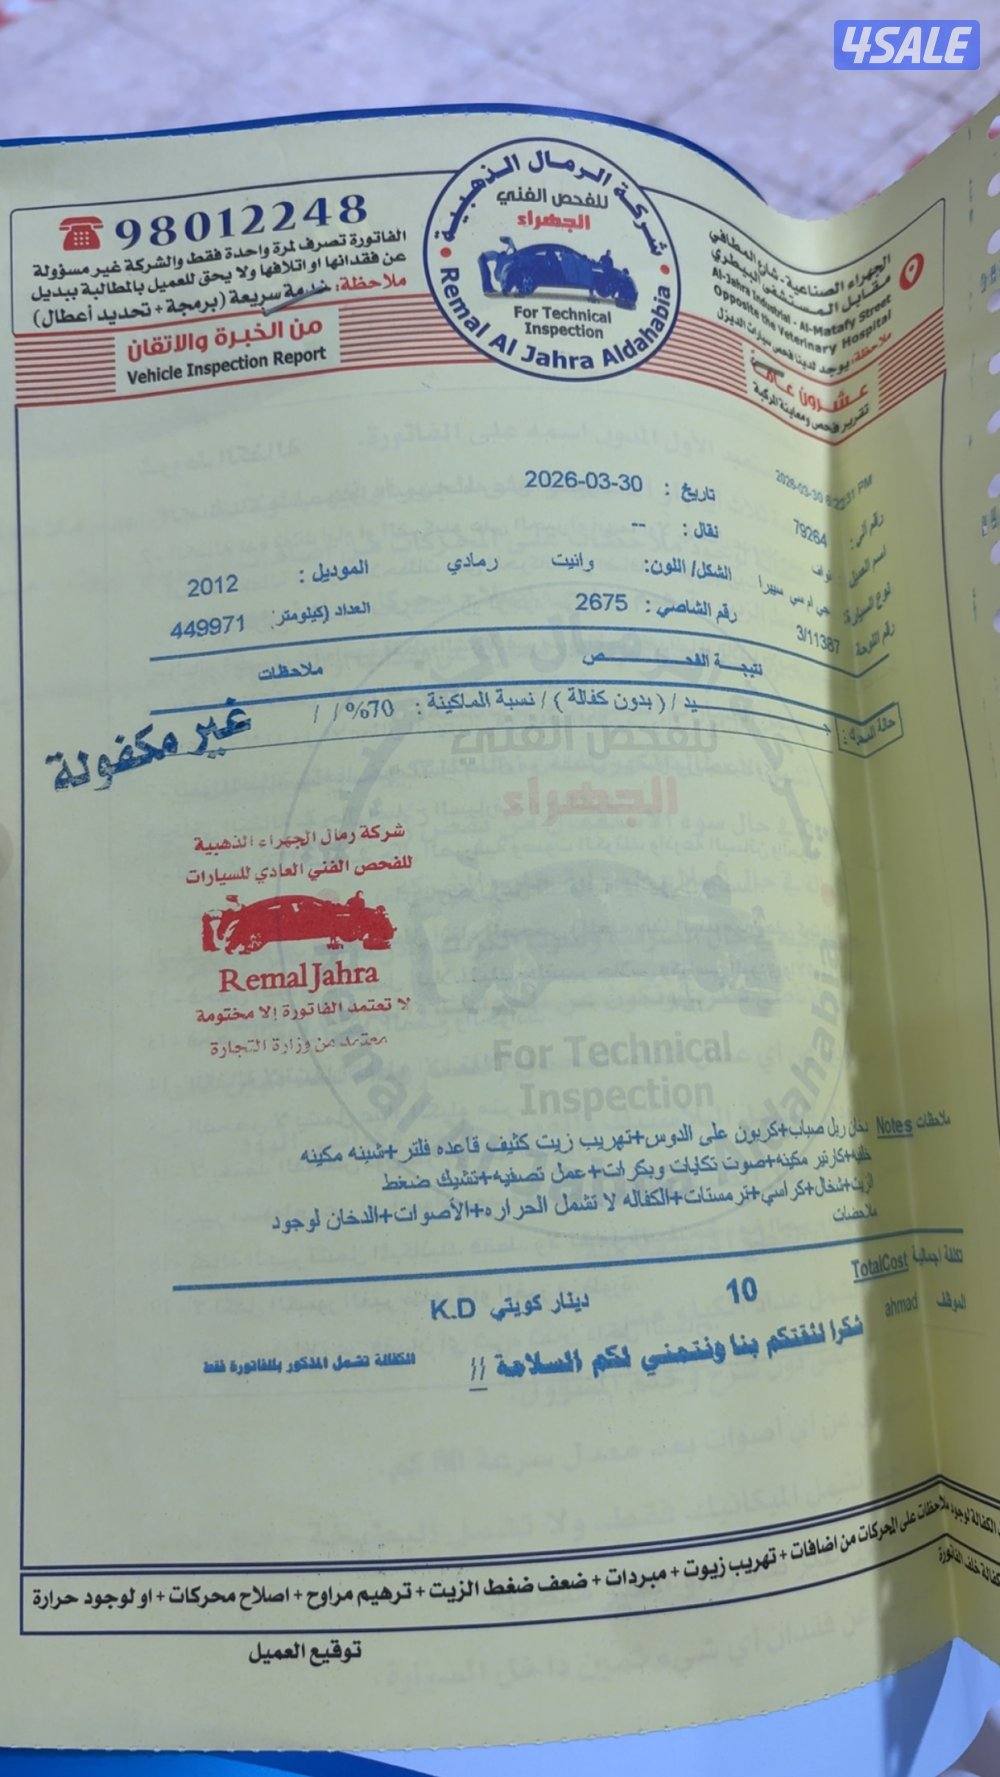 4SALE
98012248
الفاتورة تصرف لمرة واحدة فقط والشركة غير مسؤولة
عن فقدانها او اتلافها ولا يحق للعميل بالمطالبة ببديل
ملاحظة: خدمة سريعة (برمجة + تحديد أعطال)
من الخبرة والاتقان
Vehicle Inspection Report
شركة الرمال الذهبية
للفحص الفني
الجهراء
For Technical
Inspection
Remal Al Jahra Aldahabia
الجهراء الصناعية - شارع المطافي
مقابل المستشفى البيطري
Al-Jahra Industrial - Al-Matafy Street
Opposite the Veterinary Hospital
ملاحظة: يوجد لدينا فحص سيارات الديزل
عشرون عام
تقرير فحص ومعاينة المركبة
2026-03-30 6:23:31 PM
تاريخ : 2026-03-30
رقم آلي: 79264
نقال : --
اسم العميل : نواف
الشكل/ اللون: وانيت رمادي
الموديل : 2012
نوع السيارة: جي ام سي سييرا
رقم الشاصي : 2675
العداد (كيلومتر): 449971
رقم اللوحة 3/11387
نتيجة الفحص
ملاحظات
حالة المحرك :
جيد / ( بدون كفالة ) / نسبة الماكينة : 70% / /
غير مكفولة
شركة رمال الجهراء الذهبية
للفحص الفني العادي للسيارات
Remal Jahra
لا تعتمد الفاتورة إلا مختومة
معتمد من وزارة التجارة
للفحص الفني
الجهراء
For Technical
Inspection
ملاحظات Notes دخان ريل صباب+كربون على الدوس+تهريب زيت كثيف قاعده فلتر+شبنه مكينه
خلفيه+كارتير مكينه+صوت تكايات وبكرات+عمل تصفيه+تشيك ضغط
الزيت+شخال+كراسي+ترمستات+الكفاله لا تشمل الحراره+الأصوات+الدخان لوجود
ملاحضات
تكلفة اجمالية TotalCost 10 دينار كويتي K.D
الموظف ahmad
شكرا لثقتكم بنا ونتمني لكم السلامة //
الكفالة تشمل المذكور بالفاتورة فقط
الكفالة لوجود ملاحظات على المحركات من اضافات + تهريب زيوت + مبردات + ضعف ضغط الزيت + ترهيم مراوح + اصلاح محركات + او لوجود حرارة
كفالة خلف الفاتورة
توقيع العميل